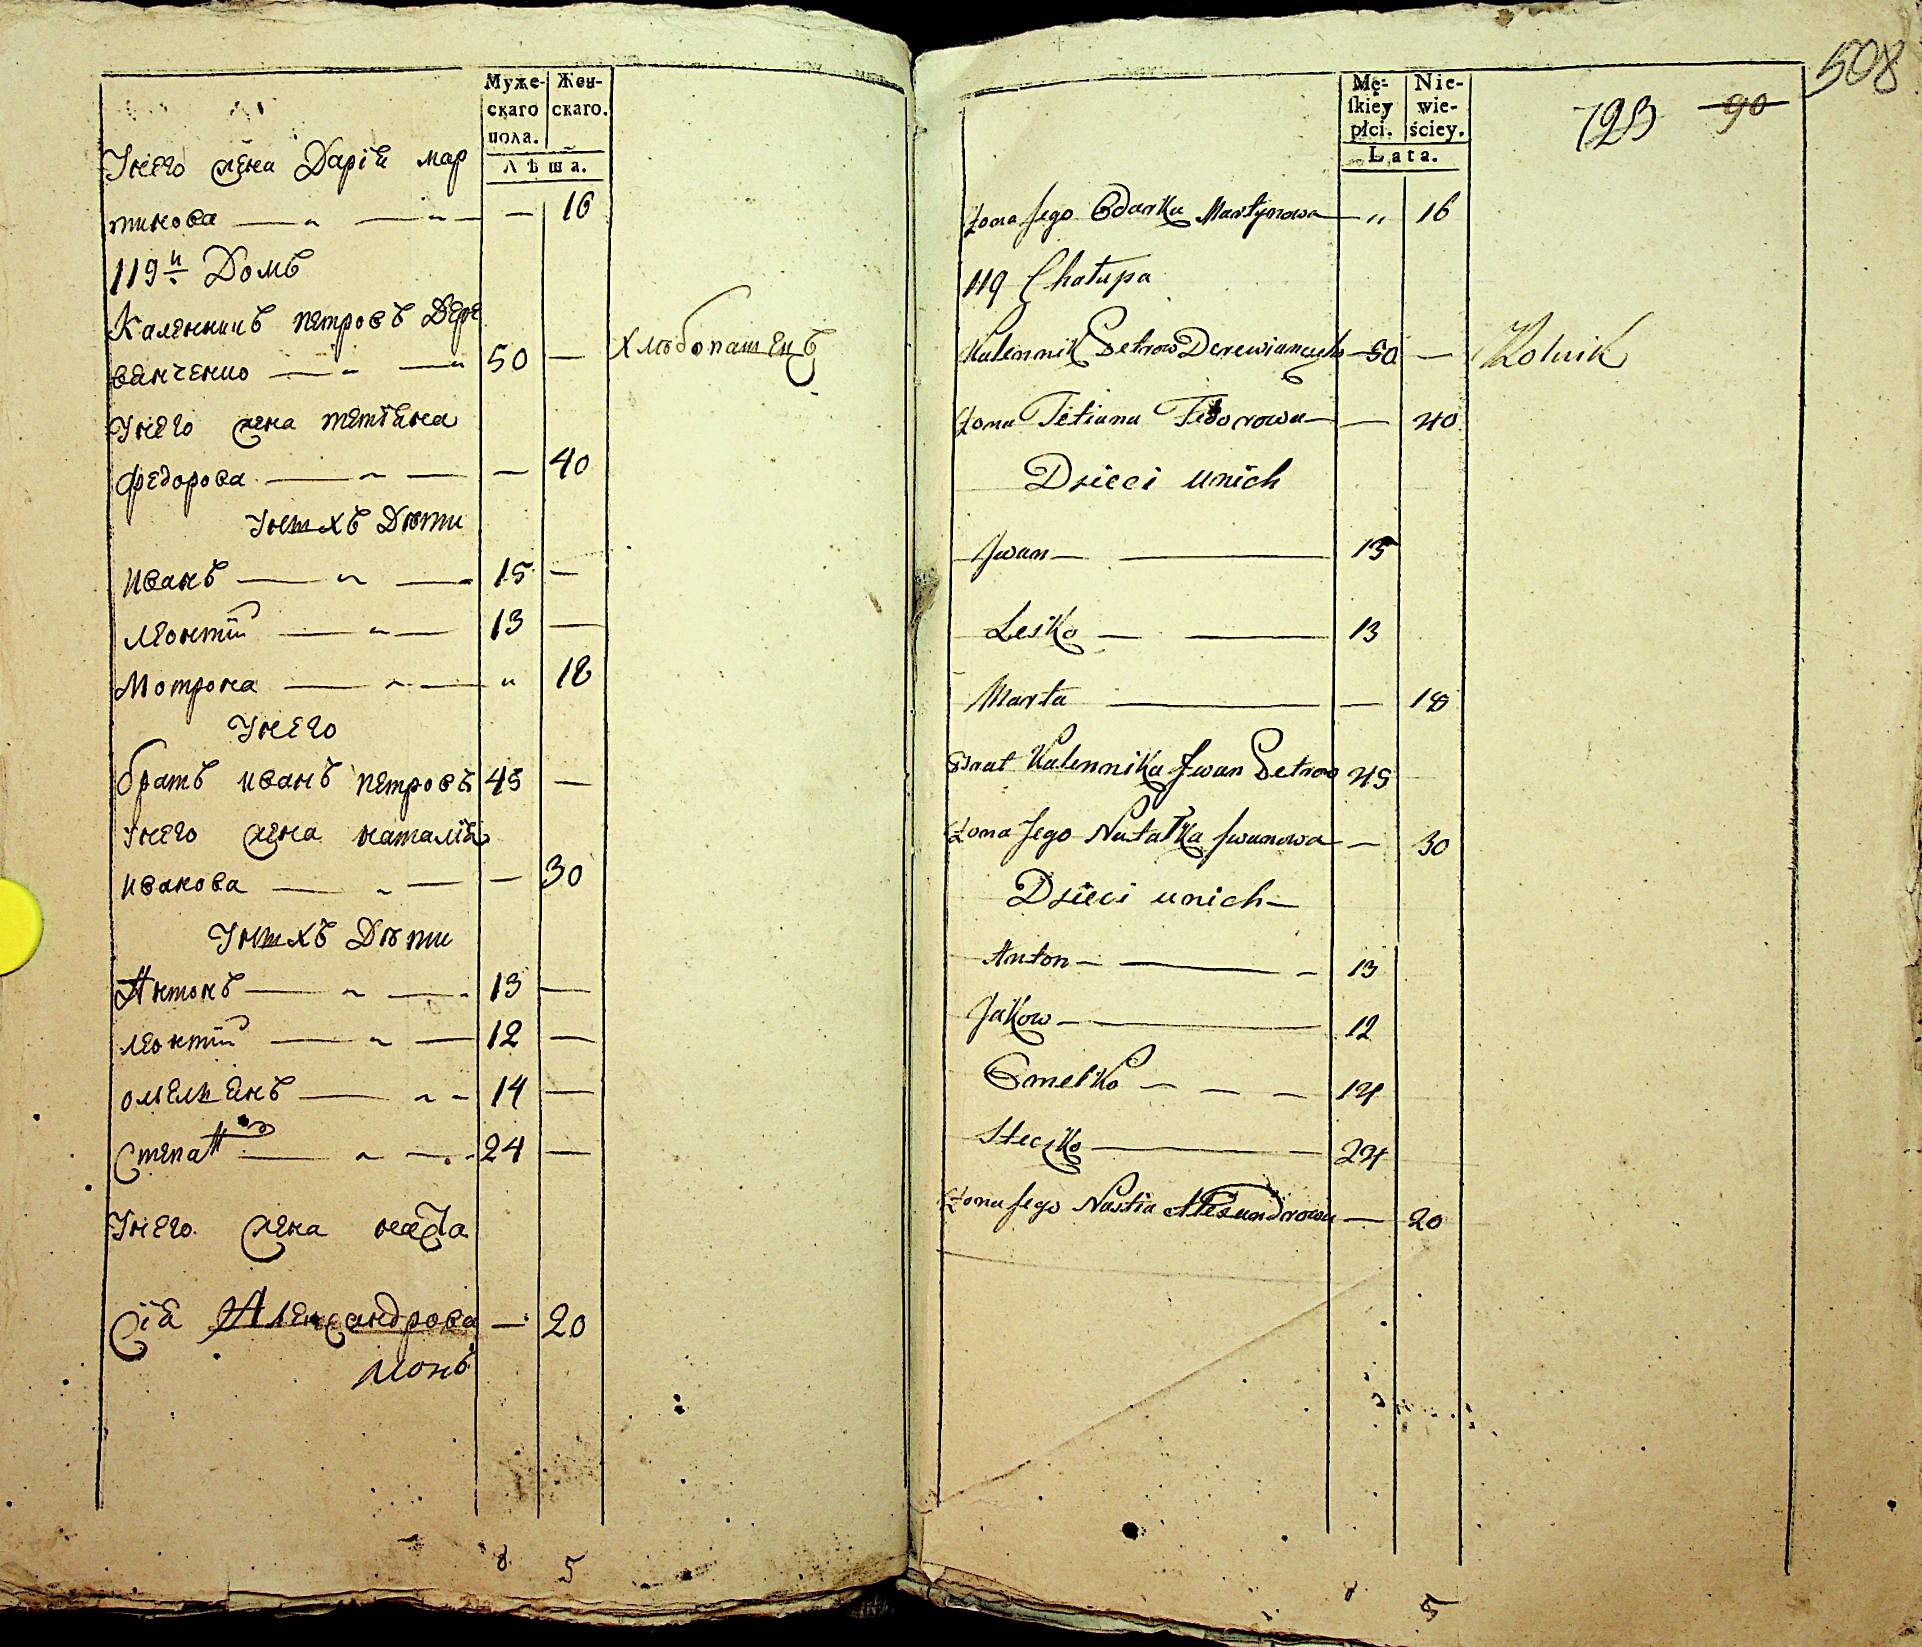 Муже-
скаго
пола.
Жен-
скаго.
Лѣта.
Унего жена Дарія мар
тинова — „ — „ — — 16
119й Домъ
Каленникъ петровъ Дере
вянченко — „ — „ 50 — хлѣбопашецъ
Унего жена тетіана
федорова — „ — — 40
Унихъ Дѣти
иванъ — „ — 15 —
леонтій — „ — 13 —
Мотрона — „ — „ 18
Унего
братъ иванъ петровъ 45 —
Унего жена наталія
иванова — „ — — 30
Унихъ Дѣти
Антонъ — „ — 13 —
леонтій — „ — 12 —
омелянъ — „ - 14 —
Степан — „ — 24 —
Унего жена наста
сія Александрова — 20
8 5
508
Mę-
skiey
płci.
Nie-
wie-
ściey.
Lata.
123 90
Żona Jego Odarka Martynowa — „ 16
119 Chałupa
Kalennik Petrow Derewianczyko — 50 — Rolnik
Żona Tetiana Fedorowa — — 40
Dzieci unich
Jwan — — 15
Lesko — — 13
Marta — — 18
Brat Kalennika Jwan Petrow 45
Żona Jego Natałka Jwanowa — — 30
Dzieci unich —
Anton — — - 13
Jakow — — 12
Omelko — — — 14
Steczko — — 24
Żona Jego Nastia Alexandrowa — 20
8 5